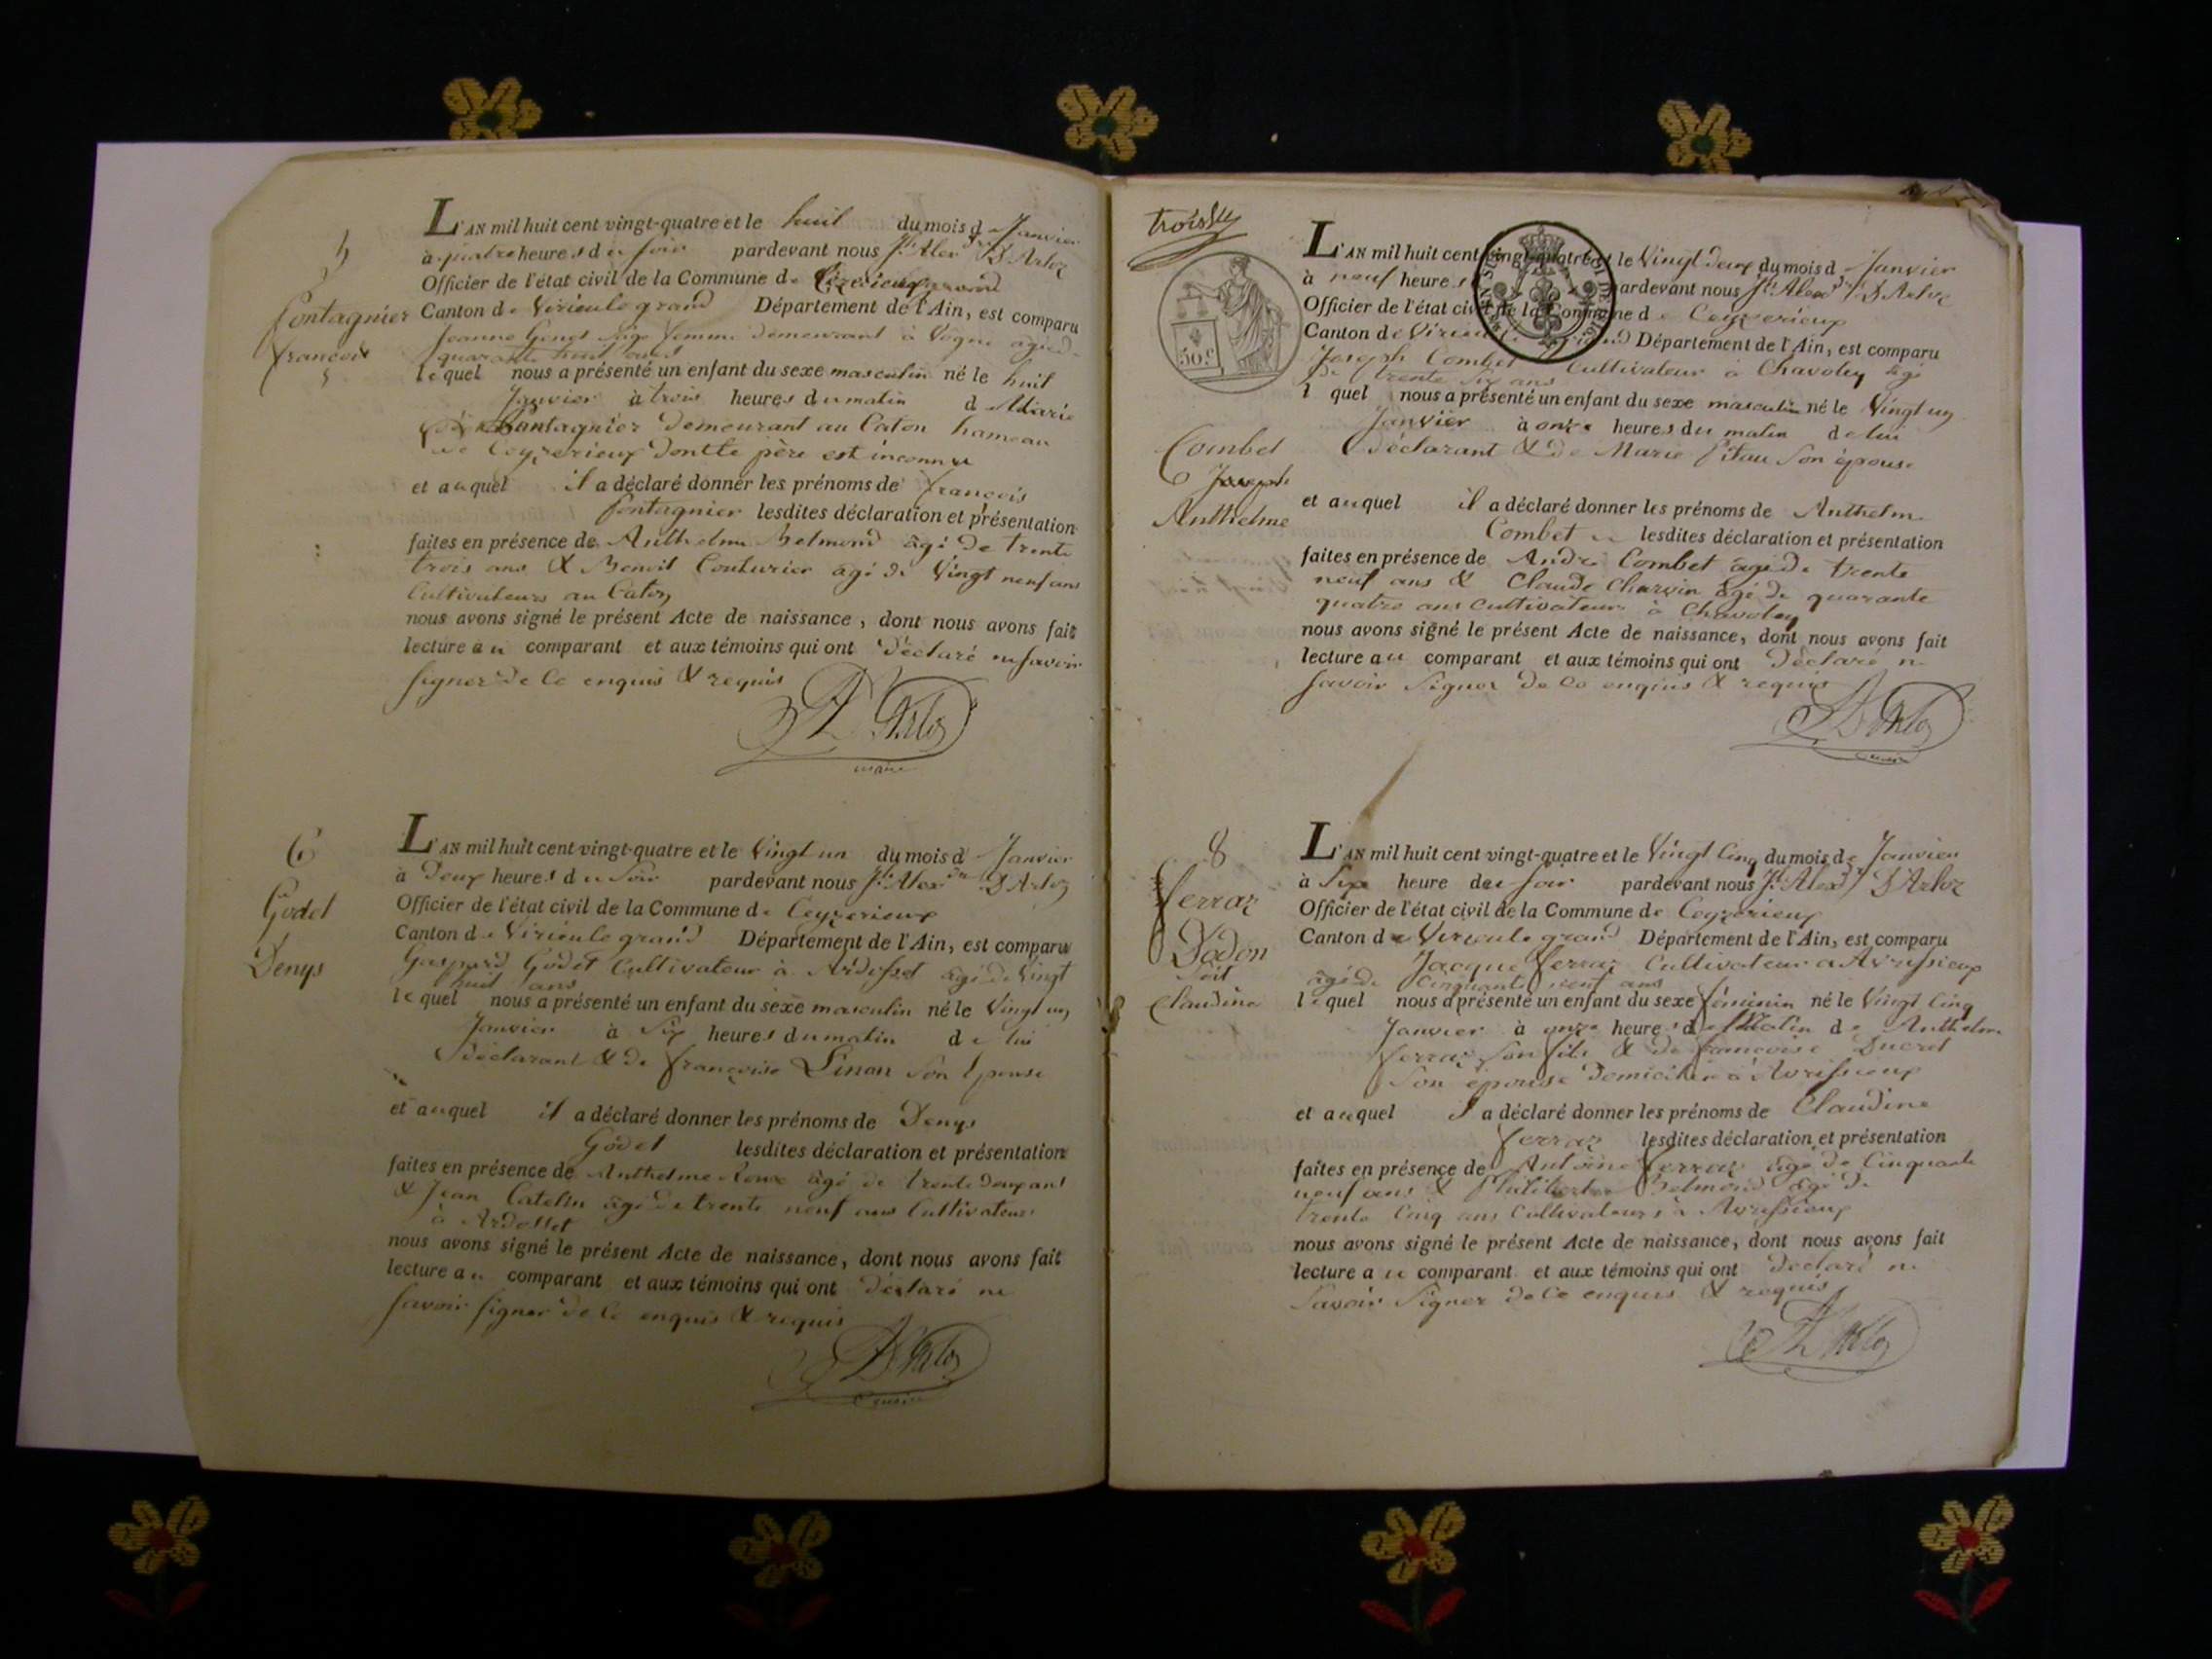 5
fontagnier
francois
L'AN mil huit cent vingt-quatre et le huit du mois d Janvier
à quatre heures du soir pardevant nous Jh Alexdre D'Arloz
Officier de l'état civil de la Commune de
Canton de Virieu le grand Département de l'Ain, est comparu
Jeanne Genet sage femme demeurant à Vogne agée de
quarante huit ans
lequel nous a présenté un enfant du sexe masculin né le huit
Janvier à trois heures du matin de Marie
fontagnier demeurant au Caton hameau
de Ceyzerieux dont le père est inconnu
et auquel il a déclaré donner les prénoms de françois
fontagnier lesdites déclaration et présentation
faites en présence de Anthelme Belmond âgé de trente
trois ans & Benoit Couturier âgé de Vingt neuf ans
Cultivateurs au Caton
nous avons signé le présent Acte de naissance, dont nous avons fait
lecture au comparant et aux témoins qui ont déclaré ne savoir
signer de ce enquis & requis
maire
6
Godet
Denys
L'AN mil huit cent vingt-quatre et le Vingt un du mois d Janvier
à Deux heures du soir pardevant nous Jh Alexdre D'Arloz
Officier de l'état civil de la Commune de Ceyzerieux
Canton de Virieu le grand Département de l'Ain, est comparu
Gaspard Godet Cultivateur à Ardosset âgé de Vingt
huit ans
lequel nous a présenté un enfant du sexe masculin né le Vingt un
Janvier à Six heures du matin de lui
déclarant & de françoise Linon son Epouse
et auquel il a déclaré donner les prénoms de Denys
Godet lesdites déclaration et présentation
faites en présence de Anthelme Roux âgé de trente deux ans
& Jean Catelin âgé de trente neuf ans Cultivateurs
à Ardosset
nous avons signé le présent Acte de naissance, dont nous avons fait
lecture au comparant et aux témoins qui ont déclaré ne
savoir signer de ce enquis & requis
maire
trois
50 c
Combet
Joseph
Anthelme
L'AN mil huit cent vingt-quatre et le Vingt deux du mois d Janvier
à neuf heures pardevant nous Jh Alexdre D'Arloz
Officier de l'état civil de la Commune de Ceyzerieux
Canton de Virieu le grand Département de l'Ain, est comparu
Joseph Combet Cultivateur à Chavoley âgé
de trente six ans
l quel nous a présenté un enfant du sexe masculin né le Vingt un
Janvier à onze heures du matin de lui
déclarant & de Marie Pitau son épouse
et auquel il a déclaré donner les prénoms de Anthelme
Combet lesdites déclaration et présentation
faites en présence de André Combet âgé de trente
neuf ans & Claude Charvin âgé de quarante
quatre ans cultivateurs à Chavoley
nous avons signé le présent Acte de naissance, dont nous avons fait
lecture au comparant et aux témoins qui ont déclaré ne
savoir signer de ce enquis & requis
8
ferraz
Dodon
soit
Claudine
L'AN mil huit cent vingt-quatre et le Vingt Cinq du mois de Janvier
à Six heure du soir pardevant nous Jh Alexdre D'Arloz
Officier de l'état civil de la Commune de Ceyzerieux
Canton de Virieu le grand Département de l'Ain, est comparu
Jacque ferraz Cultivateur à Avrissieux
âgé de Cinquante neuf ans
lequel nous a présenté un enfant du sexe féminin né le Vingt Cinq
Janvier à onze heures du Matin de Anthelme
ferraz son fils & de françoise Ducret
son épouse domiciliée à Avrissieux
et auquel il a déclaré donner les prénoms de Claudine
ferraz lesdites déclaration et présentation
faites en présence de Antoine ferraz âgé de Cinquante
neuf ans & Philibert Belmond âgé de
trente Cinq ans Cultivateurs à Avrissieux
nous avons signé le présent Acte de naissance, dont nous avons fait
lecture au comparant et aux témoins qui ont déclaré ne
savoir signer de ce enquis & requis